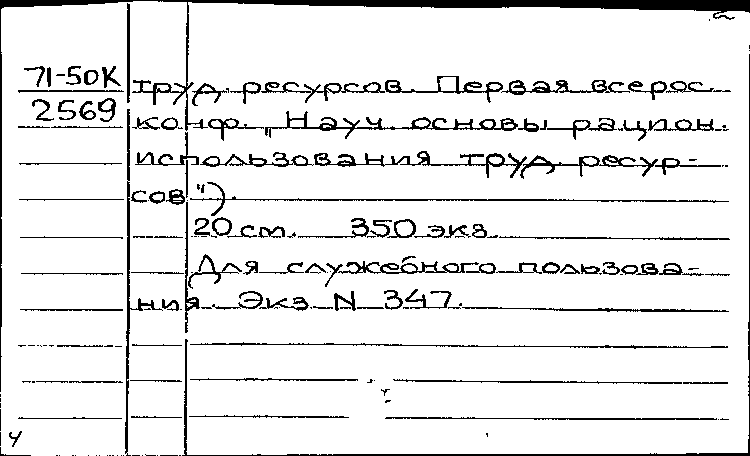 71-50К
2569
труд. ресурсов. Первая всерос.
конф. „Науч. основы рацион.
использования труд. ресур-
сов").
20 см. 350 экз.
Для служебного пользова-
ния. Экз N 347.
4